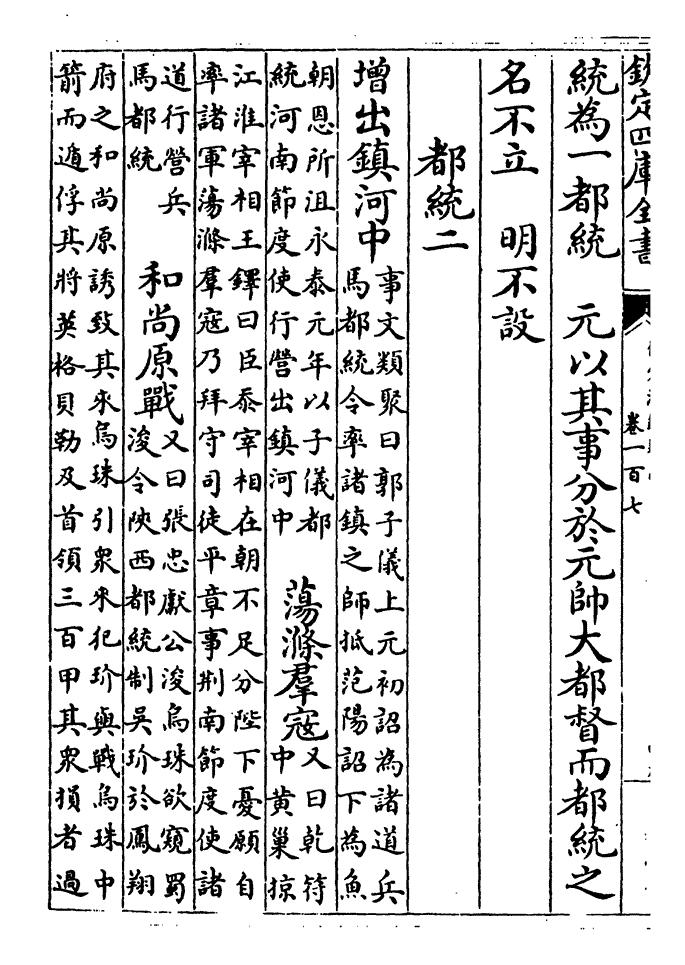 欽定四庫全書
卷一百七
統為一都統　元以其事分於元帥大都督而都統之
名不立　明不設
都統二
增出鎮河中
事文類聚曰郭子儀上元初詔為諸道兵
馬都統令率諸鎮之師抵范陽詔下為魚
朝恩所沮永泰元年以子儀都
統河南節度使行營出鎮河中
蕩滌羣寇
又曰乾符
中黄巢掠
江淮宰相王鐸曰臣忝宰相在朝不足分陛下憂願自
率諸軍蕩滌羣寇乃拜守司徒平章事荆南節度使諸
道行營兵
馬都統
和尚原戰
又曰張忠獻公浚烏珠欲窺蜀
浚令陝西都統制吳玠於鳳翔
府之和尚原誘致其來烏珠引衆來犯玠與戰烏珠中
箭而遁俘其將英格貝勒及首領三百甲其衆損者過